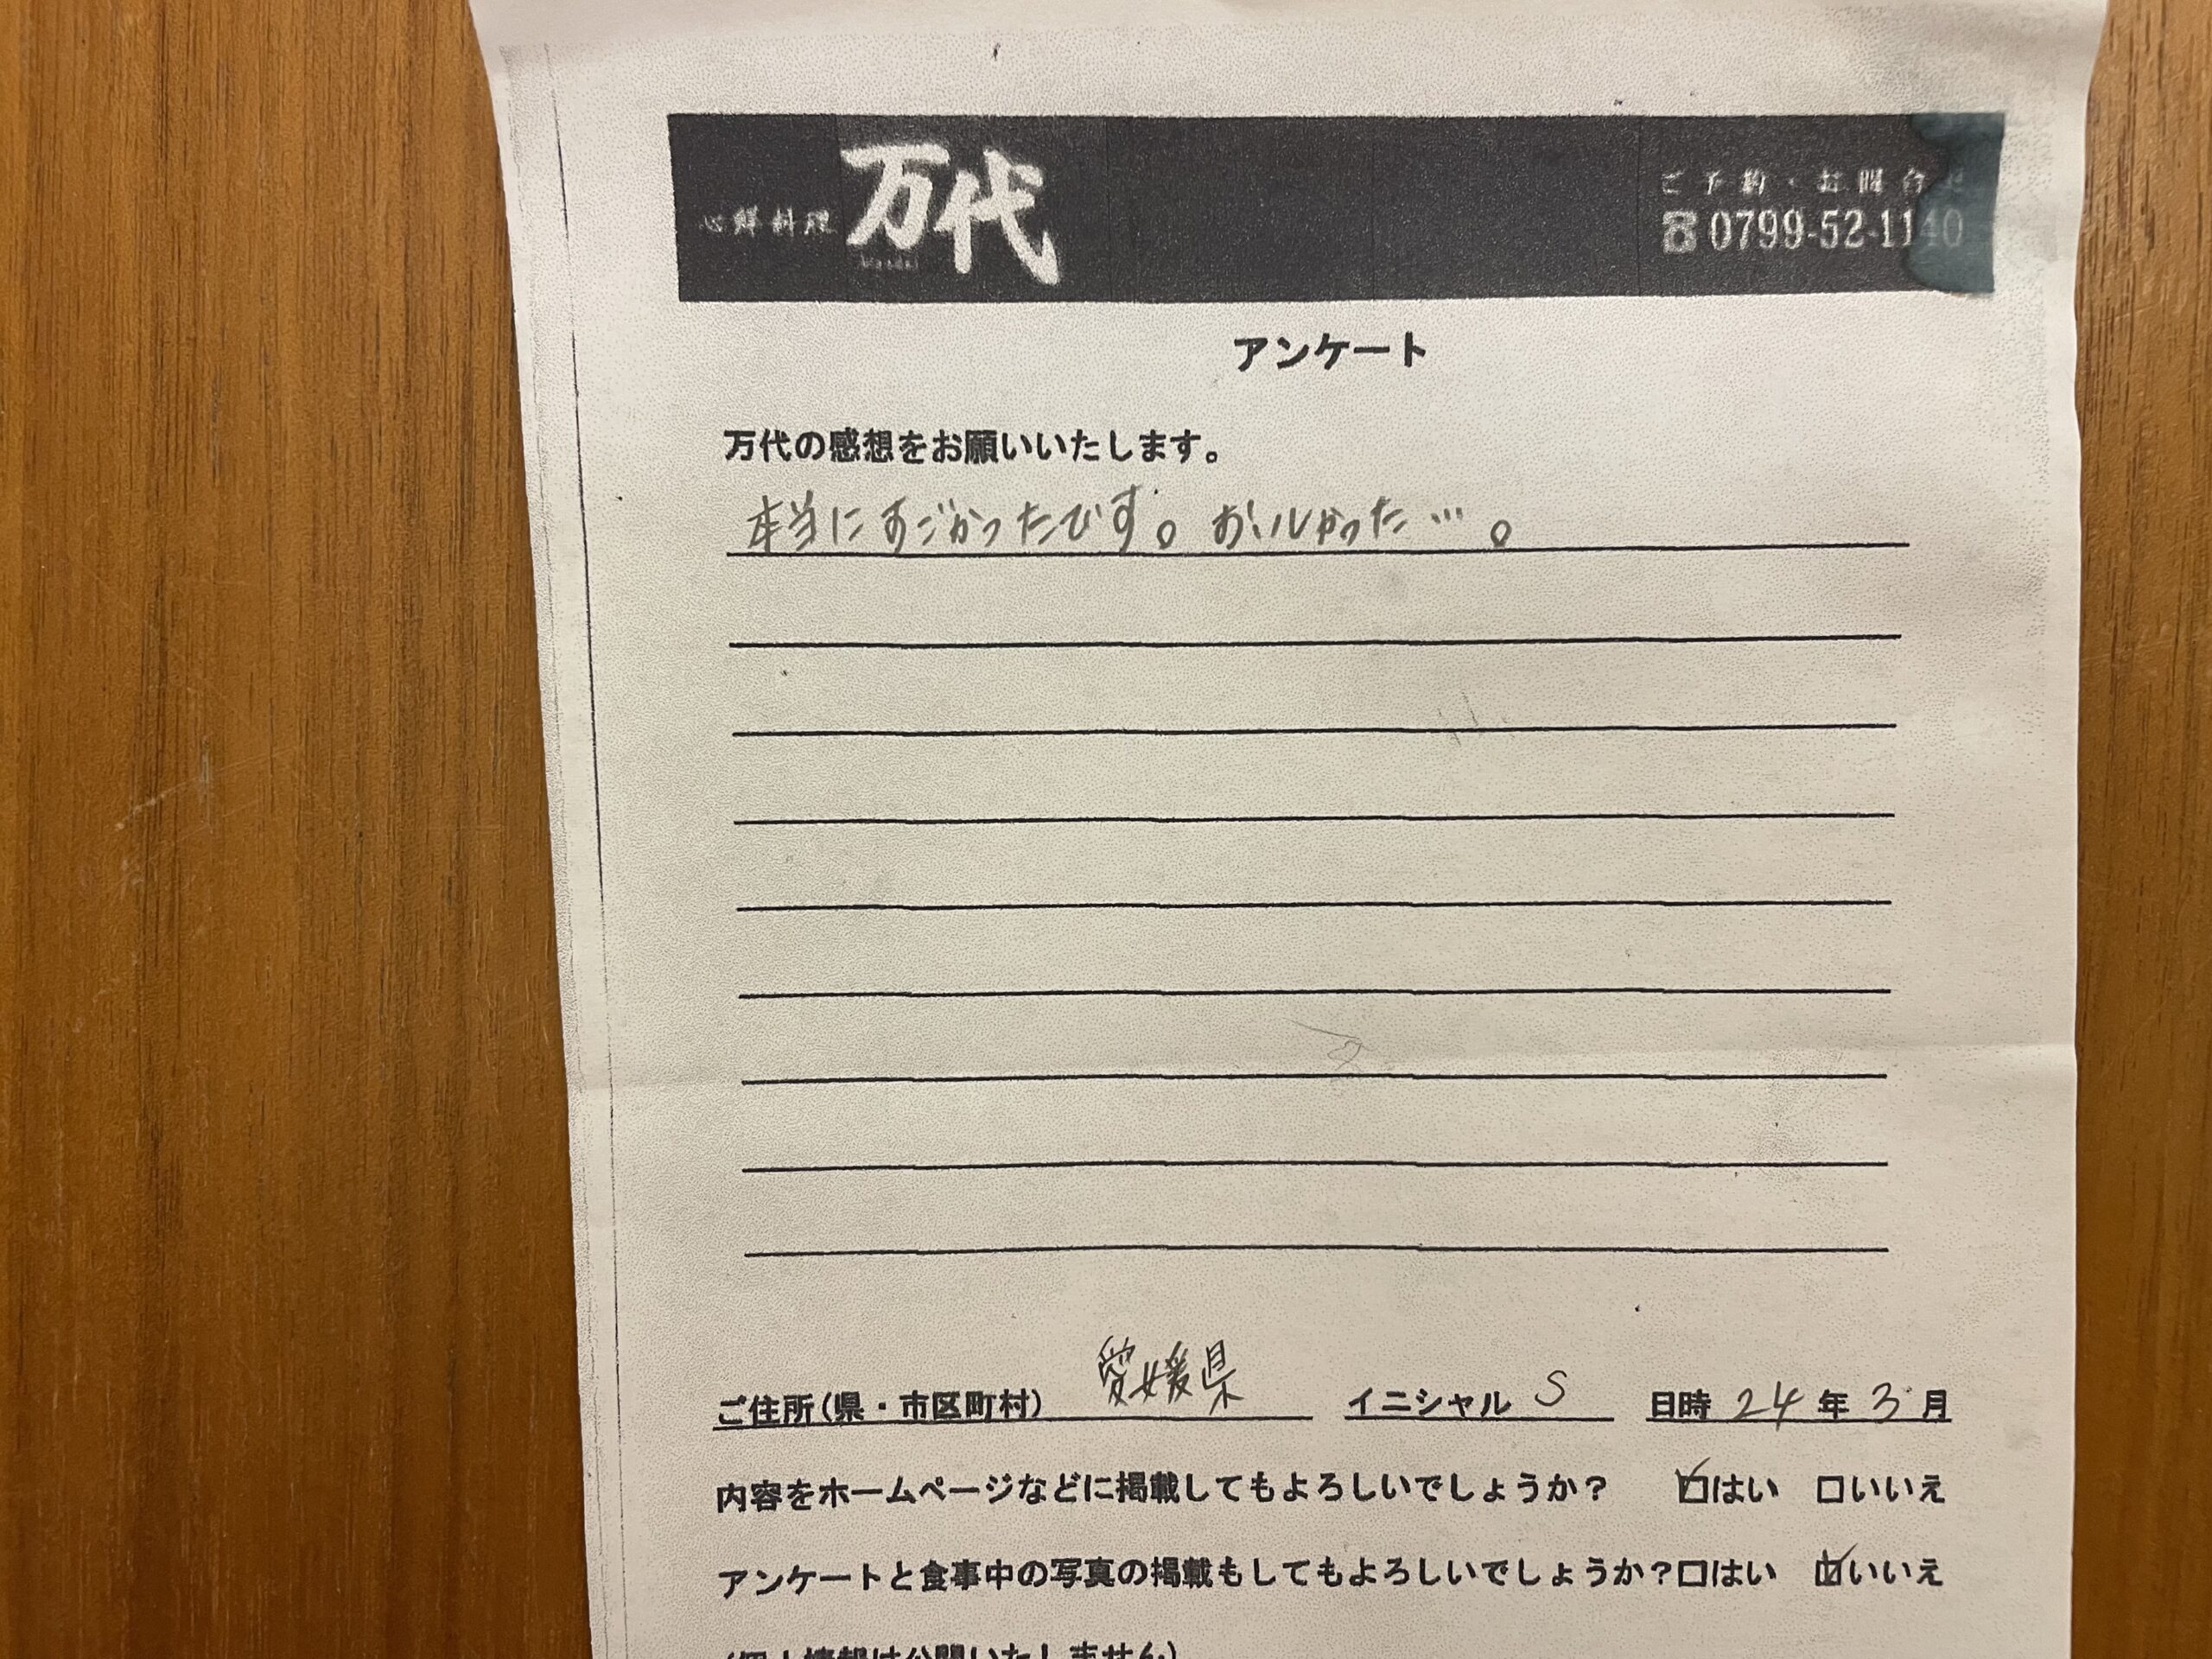 心鮮料理 万代
ご予約・お問合せ
☎0799-52-1140
アンケート
万代の感想をお願いいたします。
本当にすごかったです。おいしかった…。
ご住所(県・市区町村) 愛媛県 イニシャル S 日時 24年3月
内容をホームページなどに掲載してもよろしいでしょうか? ☑はい □いいえ
アンケートと食事中の写真の掲載もしてもよろしいでしょうか?□はい ☑いいえ
(個人情報は公開いたしません)